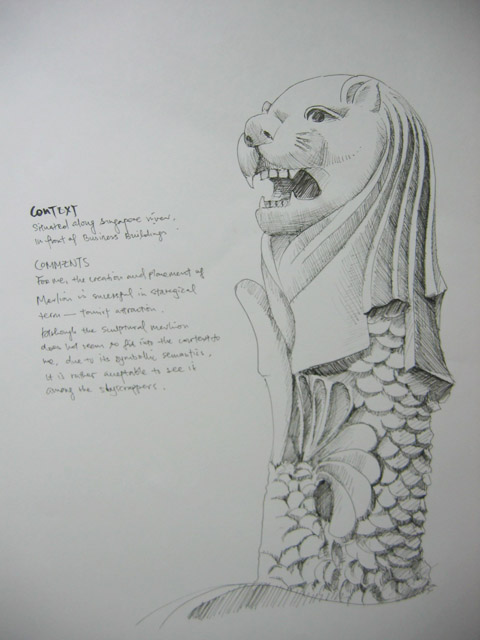 CONTEXT
Situated along Singapore river,
in front of Business Buildings
COMMENTS
For me, the location and placement of
Merlion is sucessful in stategical
term — tourist attraction.
Although the sculptural merlion
does not seem to fit into the context to
me, due to its symbolic semantics,
it is rather acceptable to see it
among the skyscrapers.